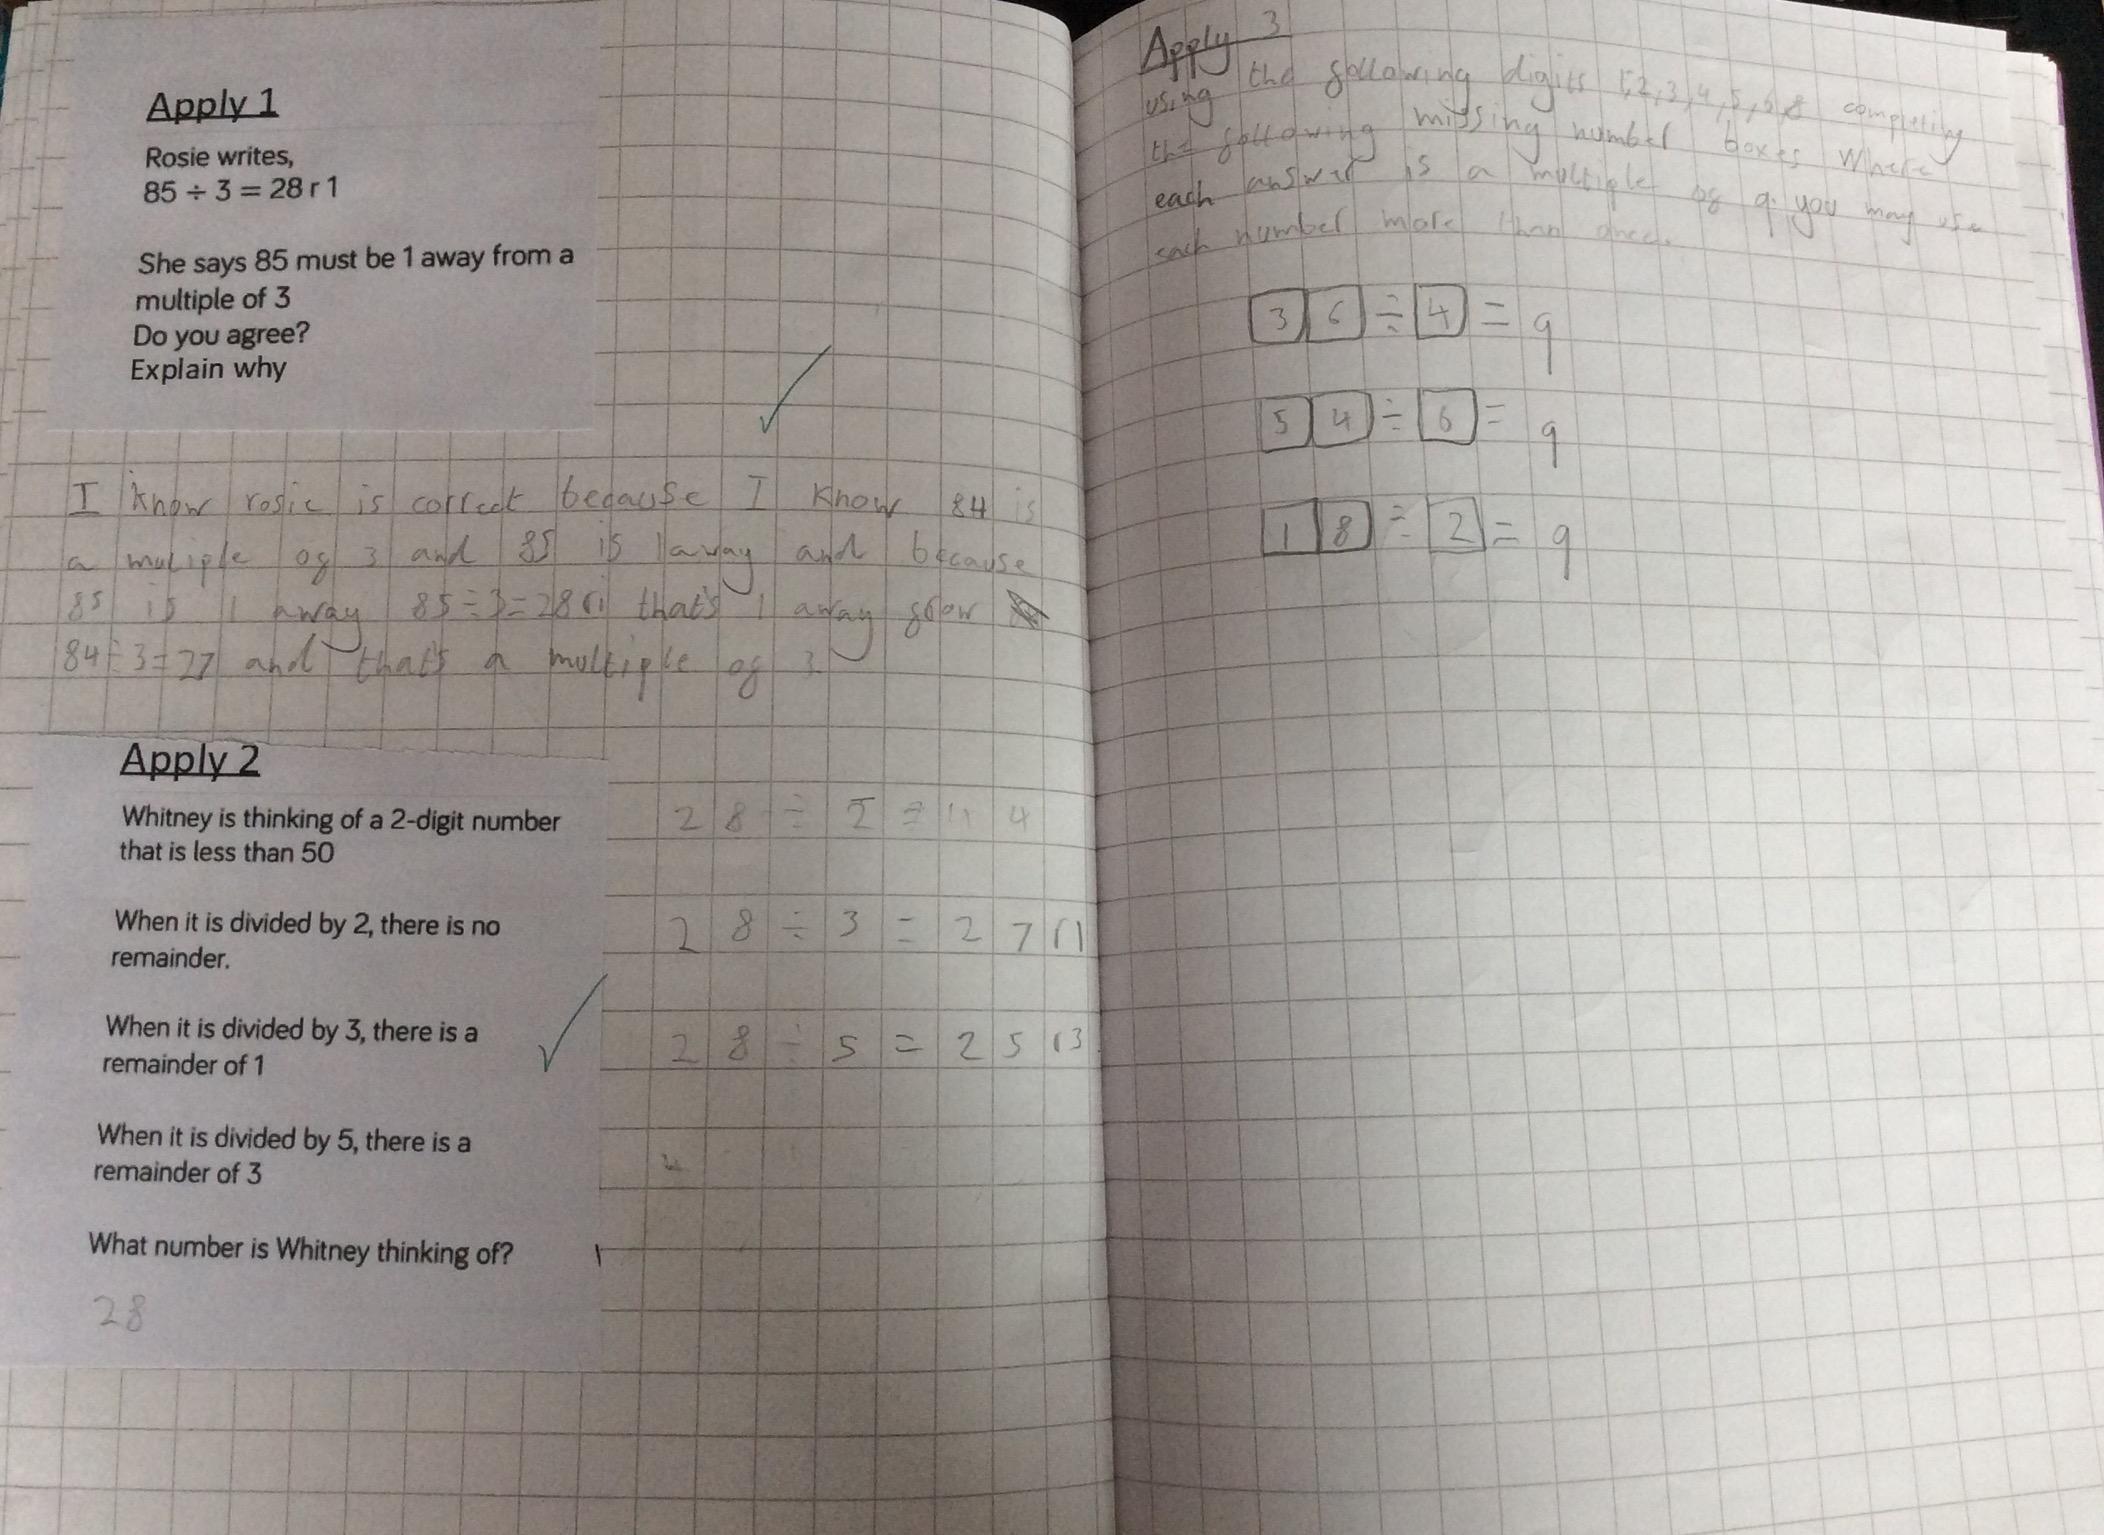 Apply 1
Rosie writes,
85 ÷ 3 = 28 r 1
She says 85 must be 1 away from a
multiple of 3
Do you agree?
Explain why
I know rosie is correct because I know 84 is
a muliple of 3 and 85 is 1 away and because
85 is 1 away 85÷3=28 r1 that's 1 away from
84÷3=27 and that's a multiple of 3
Apply 2
Whitney is thinking of a 2-digit number
that is less than 50
When it is divided by 2, there is no
remainder.
When it is divided by 3, there is a
remainder of 1
When it is divided by 5, there is a
remainder of 3
What number is Whitney thinking of?
28
28 ÷ 2 = 14
28 ÷ 3 = 27 r1
28 ÷ 5 = 25 r3
Apply 3
using the following digits 1,2,3,4,5,6,8 completing
the following missing number boxes where
each answer is a multiple of 9. you may use
each number more than once.
36 ÷ 4 = 9
54 ÷ 6 = 9
18 ÷ 2 = 9